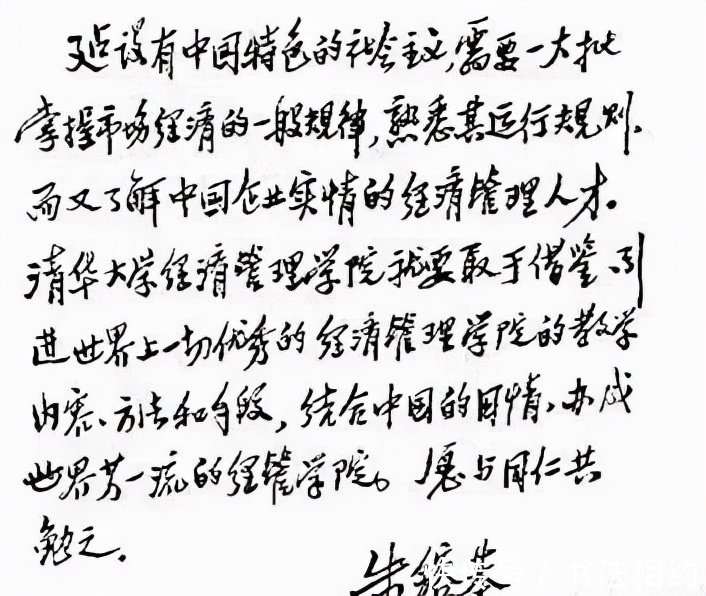 建设有中国特色的社会主义,需要一大批
掌握市场经济的一般规律,熟悉其运行规则、
而又了解中国企业实情的经济管理人才。
清华大学经济管理学院就要敢于借鉴、引
进世界上一切优秀的经济管理学院的教学
内容、方法和手段,结合中国的国情,办成
世界第一流的经管学院。愿与同仁共
勉之。
朱镕基
号/书法相约